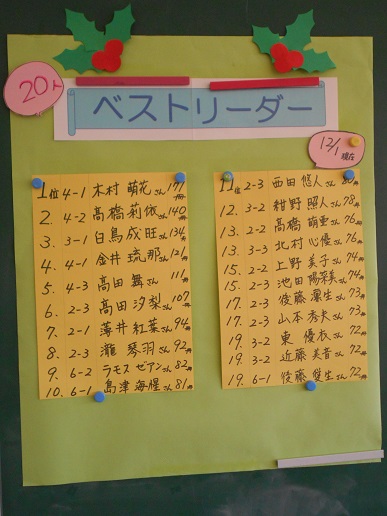 20人
ベストリーダー
12/1現在
1位 4-1 木村 萌花さん 177冊
2. 4-2 高橋莉依さん 140冊
3. 3-1 白鳥成旺さん 134冊
4. 4-1 金井琉那さん 121冊
5. 4-3 高田 舞さん 111冊
6. 2-3 高田汐梨さん 107冊
7. 2-1 薄井紅葉さん 94冊
8. 2-3 瀧 琴羽さん 92冊
9. 6-2 ラモスゼアンさん 82冊
10. 6-1 島津海惺さん 81冊
11位 2-3 西田悠人さん 80冊
12. 3-2 紺野照人さん 78冊
13. 2-2 高橋萌亜さん 76冊
13. 3-3 北村心優さん 76冊
15. 2-2 上野美子さん 74冊
15. 2-3 池田陽菜美さん 74冊
17. 2-3 後藤 生さん 73冊
17. 2-3 山本秀夫さん 73冊
19. 3-2 東 優衣さん 72冊
19. 3-2 近藤美音さん 72冊
19. 6-1 後藤 生さん 72冊